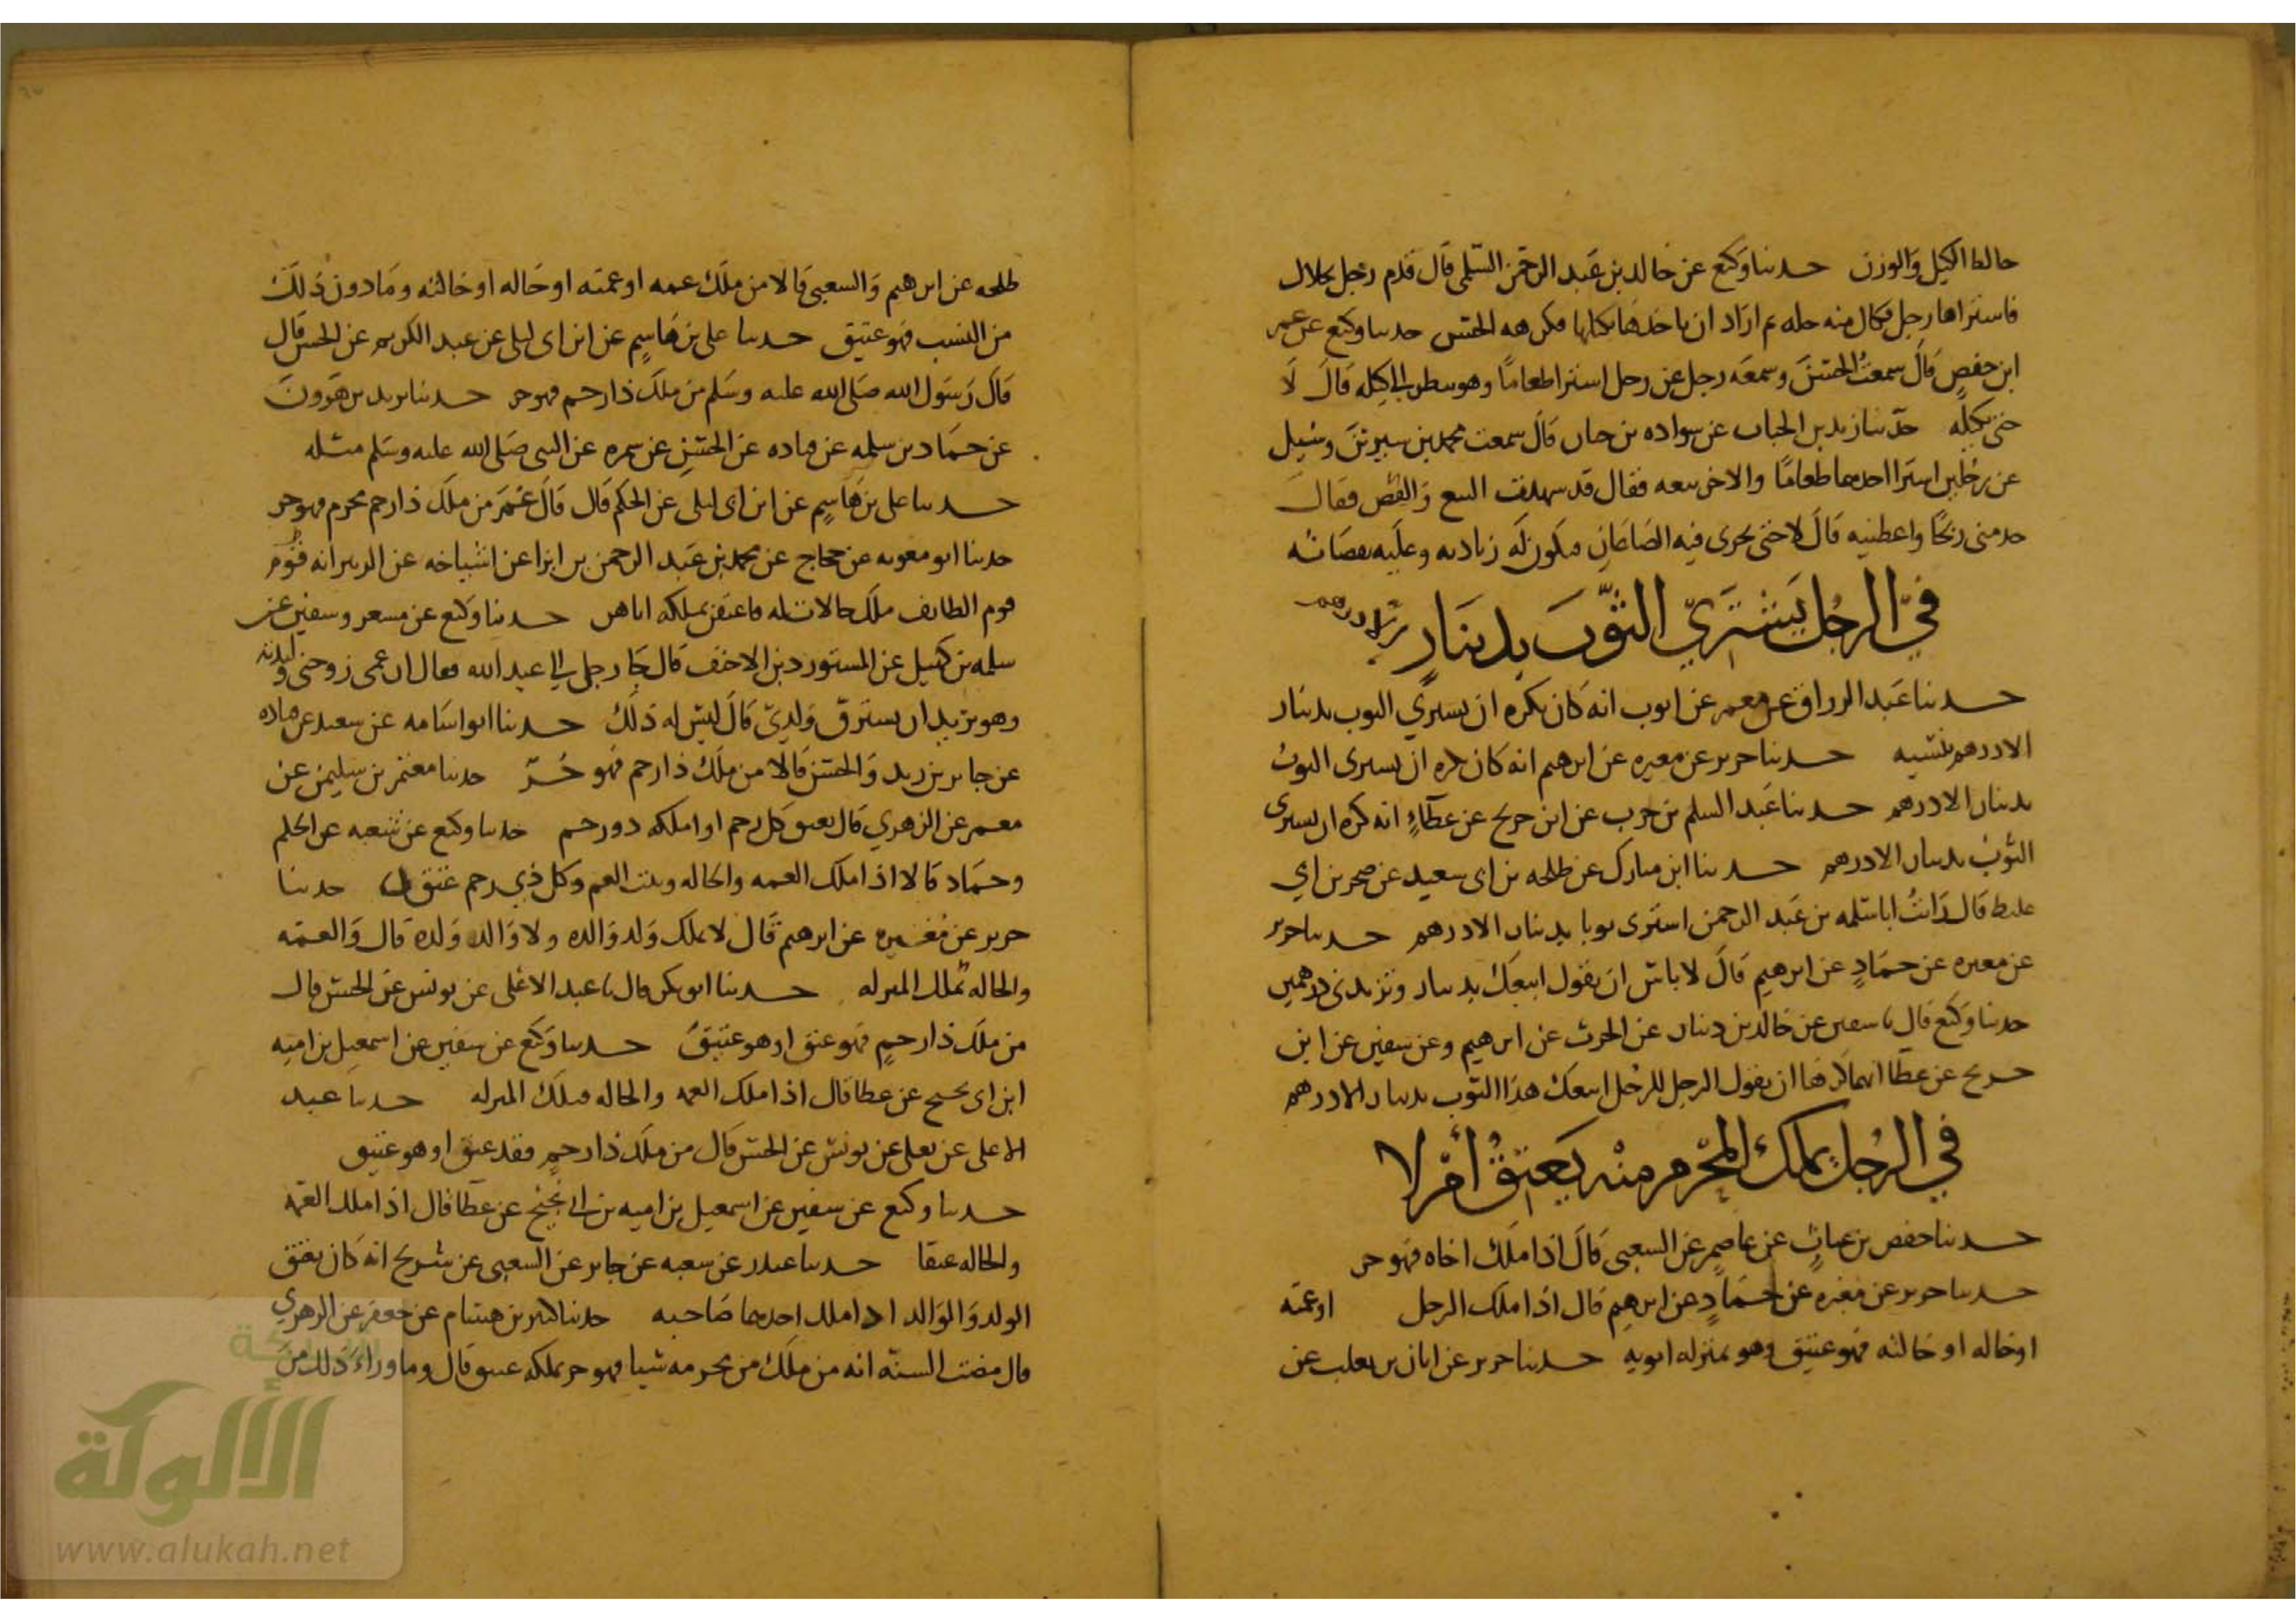 حالط الكيل والوزن حدثنا وكيع عن خالد بن عبد الرحمن السلمي قال قدم رجل بجلال
فاشتراها رجل فكال منه حله ثم اراد ان ياخذها بكيلها فكرهه الحسن حدثنا وكيع عن عمر
ابن حفص قال سمعت الحسن وسمعه رجل عن رجل اشترا طعاما وهو ينظر الى كيله قال لا
حتى يكيله حدثنا زيد بن الحباب عن سواده بن حيان قال سمعت محمد بن سيرين وسئيل
عن رجلين اشترا احدهما طعاما والاخر معه فقال قد شهدت البيع والقبض فقال
خذ مني ربحا واعطنيه قال لا حتى يجري فيه الصاعان فيكون له زيادته وعليه نقصانه
في الرجل يشتري الثوب بدينار الا درهم
حدثنا عبد الرزاق عن معمر عن ايوب انه كان يكره ان يشتري الثوب بدينار
الا درهم بنسيه حدثنا جرير عن مغيره عن ابرهيم انه كان يكره ان يشتري الثوب
بدينار الا درهم حدثنا عبد السلم بن حرب عن ابن جريج عن عطاء انه كره ان يشتري
الثوب بدينار الا درهم حدثنا ابن مبارك عن طلحه بن ابي سعيد عن صخر بن ابي
غليظ قال رايت ابا سلمه بن عبد الرحمن اشترى ثوبا بدينار الا درهم حدثنا جرير
عن مغيره عن حماد عن ابرهيم قال لا باس ان يقول ابيعك بدينار وتزيدني درهمين
حدثنا وكيع قال ثنا سفين عن خالد بن دينار عن الحرث عن ابرهيم وعن سفين عن ابن
جريج عن عطا انهما كرها ان يقول الرجل للرجل ابيعك هذا الثوب بدينار الا درهم
في الرجل يملك المحرم منه يعتق أم لا
حدثنا حفص بن غياث عن عاصم عن الشعبي قال اذا ملك اخاه فهو حر
حدثنا جرير عن مغيره عن حماد عن ابرهيم قال اذا ملك الرجل او عمته
او خاله او خالته فهو عتيق وهو بمنزله ابويه حدثنا جرير عن ابان بن تغلب عن
طلحه عن ابرهيم والشعبي قالا من ملك عمه او عمته او خاله او خالته وما دون ذلك
من النسب فهو عتيق حدثنا علي بن هاشم عن ابن ابي ليلى عن عبد الكريم عن الحسن قال
قال رسول الله صلى الله عليه وسلم من ملك ذا رحم فهو حر حدثنا يزيد بن هرون
عن حماد بن سلمه عن قتاده عن الحسن عن سمره عن النبي صلى الله عليه وسلم مثله
حدثنا علي بن هاشم عن ابن ابي ليلى عن الحكم قال قال عمر من ملك ذا رحم محرم فهو حر
حدثنا ابو معويه عن حجاج عن محمد بن عبد الرحمن بن ابزا عن اشياخه عن الزبير انه قدم
يوم الطايف ملك خالات له فاعتقن بملكه اياهن حدثنا وكيع عن مسعر وسفين عن
سلمه بن كهيل عن المستورد بن الاحنف قال جا رجل الى عبد الله فقال ان عمي زوجني وليدته
وهو يريد ان يسترق ولدي قال ليس له ذلك حدثنا ابو اسامه عن سعيد عن قتاده
عن جابر بن زيد والحسن قالا من ملك ذا رحم فهو حر حدثنا معتمر بن سليمن عن
معمر عن الزهري قال يعتق كل رحم اذا ملكه ذو رحم حدثنا وكيع عن شعبه عن الحكم
وحماد قالا اذا ملك العمه والخاله وبنت العم وكل ذي رحم عتق حدثنا
جرير عن مغيره عن ابرهيم قال لا يملك ولد والده ولا والد ولده قال والعمه
والخاله بتلك المنزله حدثنا ابو بكر قال ثنا عبد الاعلى عن يونس عن الحسن قال
من ملك ذا رحم فهو عتق او هو عتيق حدثنا وكيع عن سفين عن اسمعيل بن اميه
ابن ابي نجيح عن عطا قال اذا ملك العمه والخاله فبتلك المنزله حدثنا عبد
الاعلى عن يعلى عن يونس عن الحسن قال من ملك ذا رحم فقد عتق او هو عتيق
حدثنا وكيع عن سفين عن اسمعيل بن اميه بن ابي نجيح عن عطا قال اذا ملك العمه
والخاله عتقا حدثنا غندر عن شعبه عن جابر عن الشعبي عن شريح انه كان يعتق
الولد والوالد اذا ملك احدهما صاحبه حدثنا كثير بن هشام عن جعفر عن الزهري
قال مضت السنه انه من ملك من محرمه شيا فهو حر بملكه عتق قال وما وراء ذلك من
الألوكة
www.alukah.net